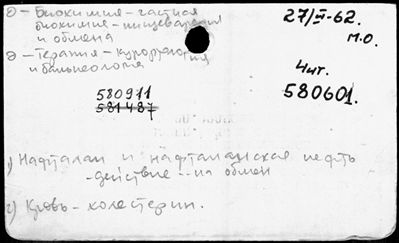 Э - Биохимия - частная
биохимия - пищеварения
и обмена
Э - Терапия - курортология
и бальнеология
27/II-62.
м.о.
Чит.
580601.
580911
581487
1) Нафталан и нафталанская нефть
- действие - на обмен
2) Кровь - холестерин.